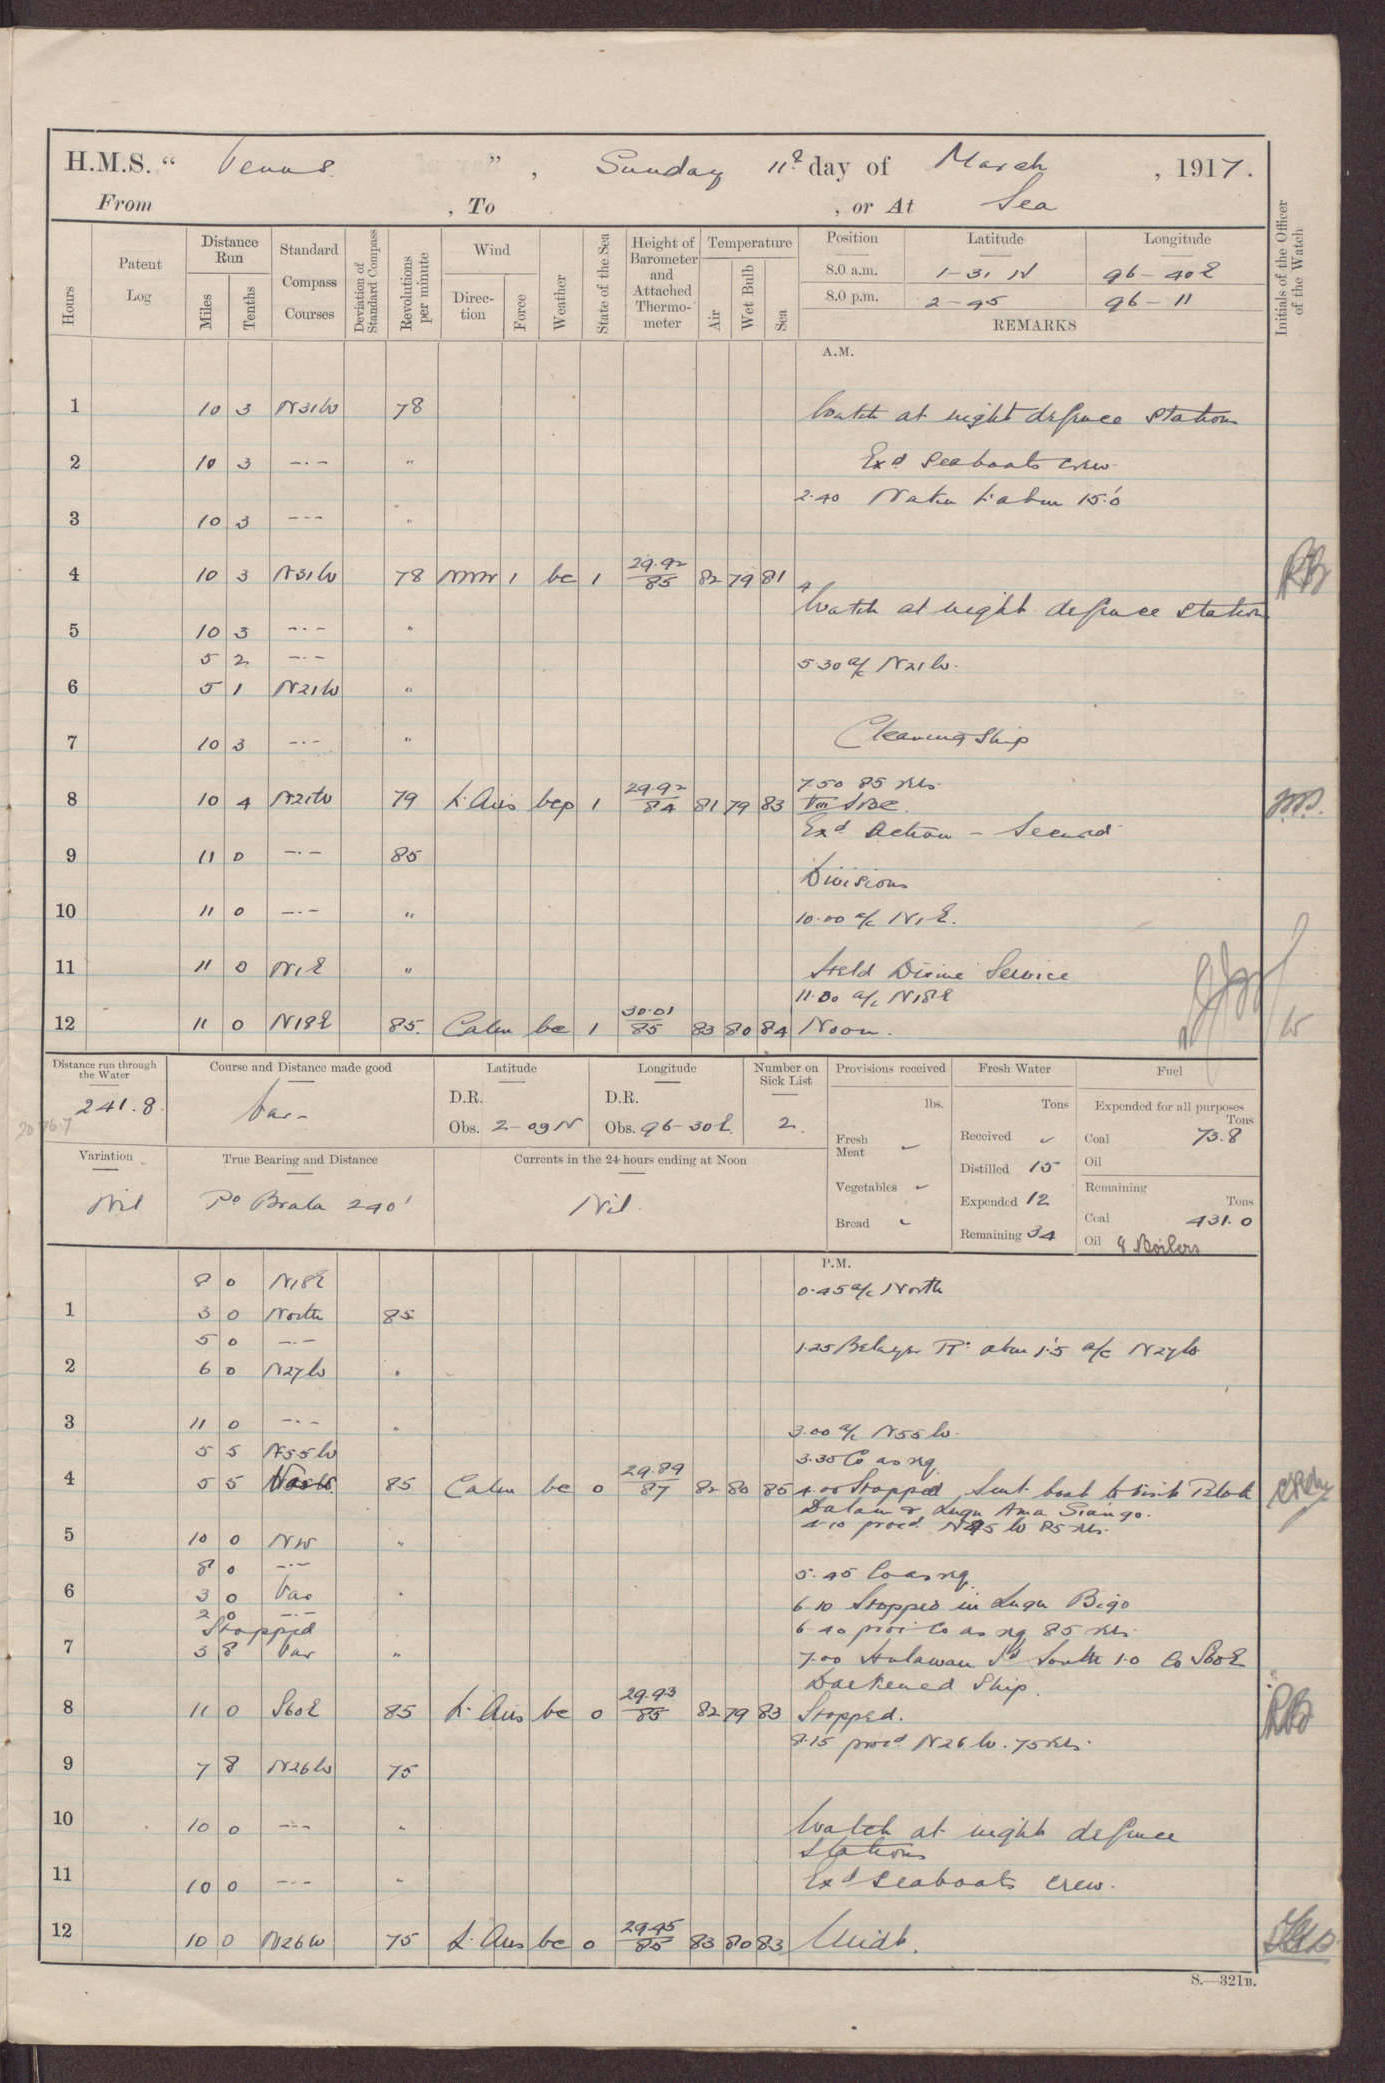 H.M.S. “ Venus ”, Sunday 11th day of March, 1917.
From , To , or At Sea
Hours
Patent Log
Distance Run
Miles
Tenths
Standard Compass Courses
Deviation of Standard Compass
Revolutions per minute
Wind
Direction
Force
Weather
State of the Sea
Height of Barometer and Attached Thermometer
Temperature
Air
Wet Bulb
Sea
Position Latitude Longitude
8.0 a.m. 1-31 N 96-40E
8.0 p.m. 2-45 96-11
REMARKS
Initials of the Officer of the Watch
A.M.
1 10 3 N31W 78 Watch at night defence stations
2 10 3 -.- " Exd Seaboats crew.
2.40
3 10 3 --- "
4 10 3 N31W 78 NNW 1 bc 1 29.92 85 82 79 81
4 Watch at night defence station
5 10 3 -.- "
5 2 -.- 5 30 a/c N21W.
6 5 1 N21W "
7 10 3 -.- " Cleaning Ship
7.50 85 revs.
8 10 4 N21W 79 L. Airs bcp 1 29.92 84 81 79 83
Exd Action - Secured
9 11 0 -.- 85
Divisions
10 11 0 -.- " 10.00 a/c N1E.
11 11 0 N1E " Held Divine Service
11.00 a/c N18E
12 11 0 N18E 85. Calm bc 1 30.01 85 83 80 84 Noon.
Distance run through the Water
241.8
Course and Distance made good
Var-
Latitude
D.R.
Obs. 2-09 N
Longitude
D.R.
Obs. 96-30E.
Number on Sick List
2.
Provisions received
lbs.
Fresh Meat
Vegetables
Bread
Fresh Water
Tons
Received
Distilled 15
Expended 12
Remaining 34
Fuel
Expended for all purposes
Tons
Coal 73.8
Oil
Remaining
Tons
Coal 431.0
Oil 8 Boilers
Variation
Nil
True Bearing and Distance
Po Brala 240'
Currents in the 24 hours ending at Noon
Nil.
P.M.
8 0 N18E 0.45 a/c North
1 3 0 North 85
5 0 -.- 1.25 abm 1.5 a/c N27W
2 6 0 N27W "
3 11 0 -.- " 3.00 a/c N55W.
5 5 N55W 3.30 Co as req
4 5 5 85 Calm bc 0 29.89 87 82 80 85 4.00 Stopped. Sent boat to visit Telok
Dalam & Lugu Ama Siango.
4.10 procd N45W 85 revs.
5 10 0 NW "
8 0 -.- 5.45 Co as req.
6 3 0 Var "
2 0 -.- 6.10 Stopped in Lugu Bigo
Stopped 6.40 Co as req 85 revs.
7 3 8 Var " 7.00 South 1.0 Co S60E
Darkened Ship.
8 11 0 S60E 85 L. Airs bc 0 29.93 85 82 79 83 Stopped.
8.15 procd N26W. 75 revs.
9 7 8 N26W 75
10 10 0 --- " Watch at night defence
stations
11 10 0 --- " Exd Seaboats crew.
12 10 0 N26W 75 L. Airs bc 0 29.95 85 83 80 83 Midt.
S.—321B.